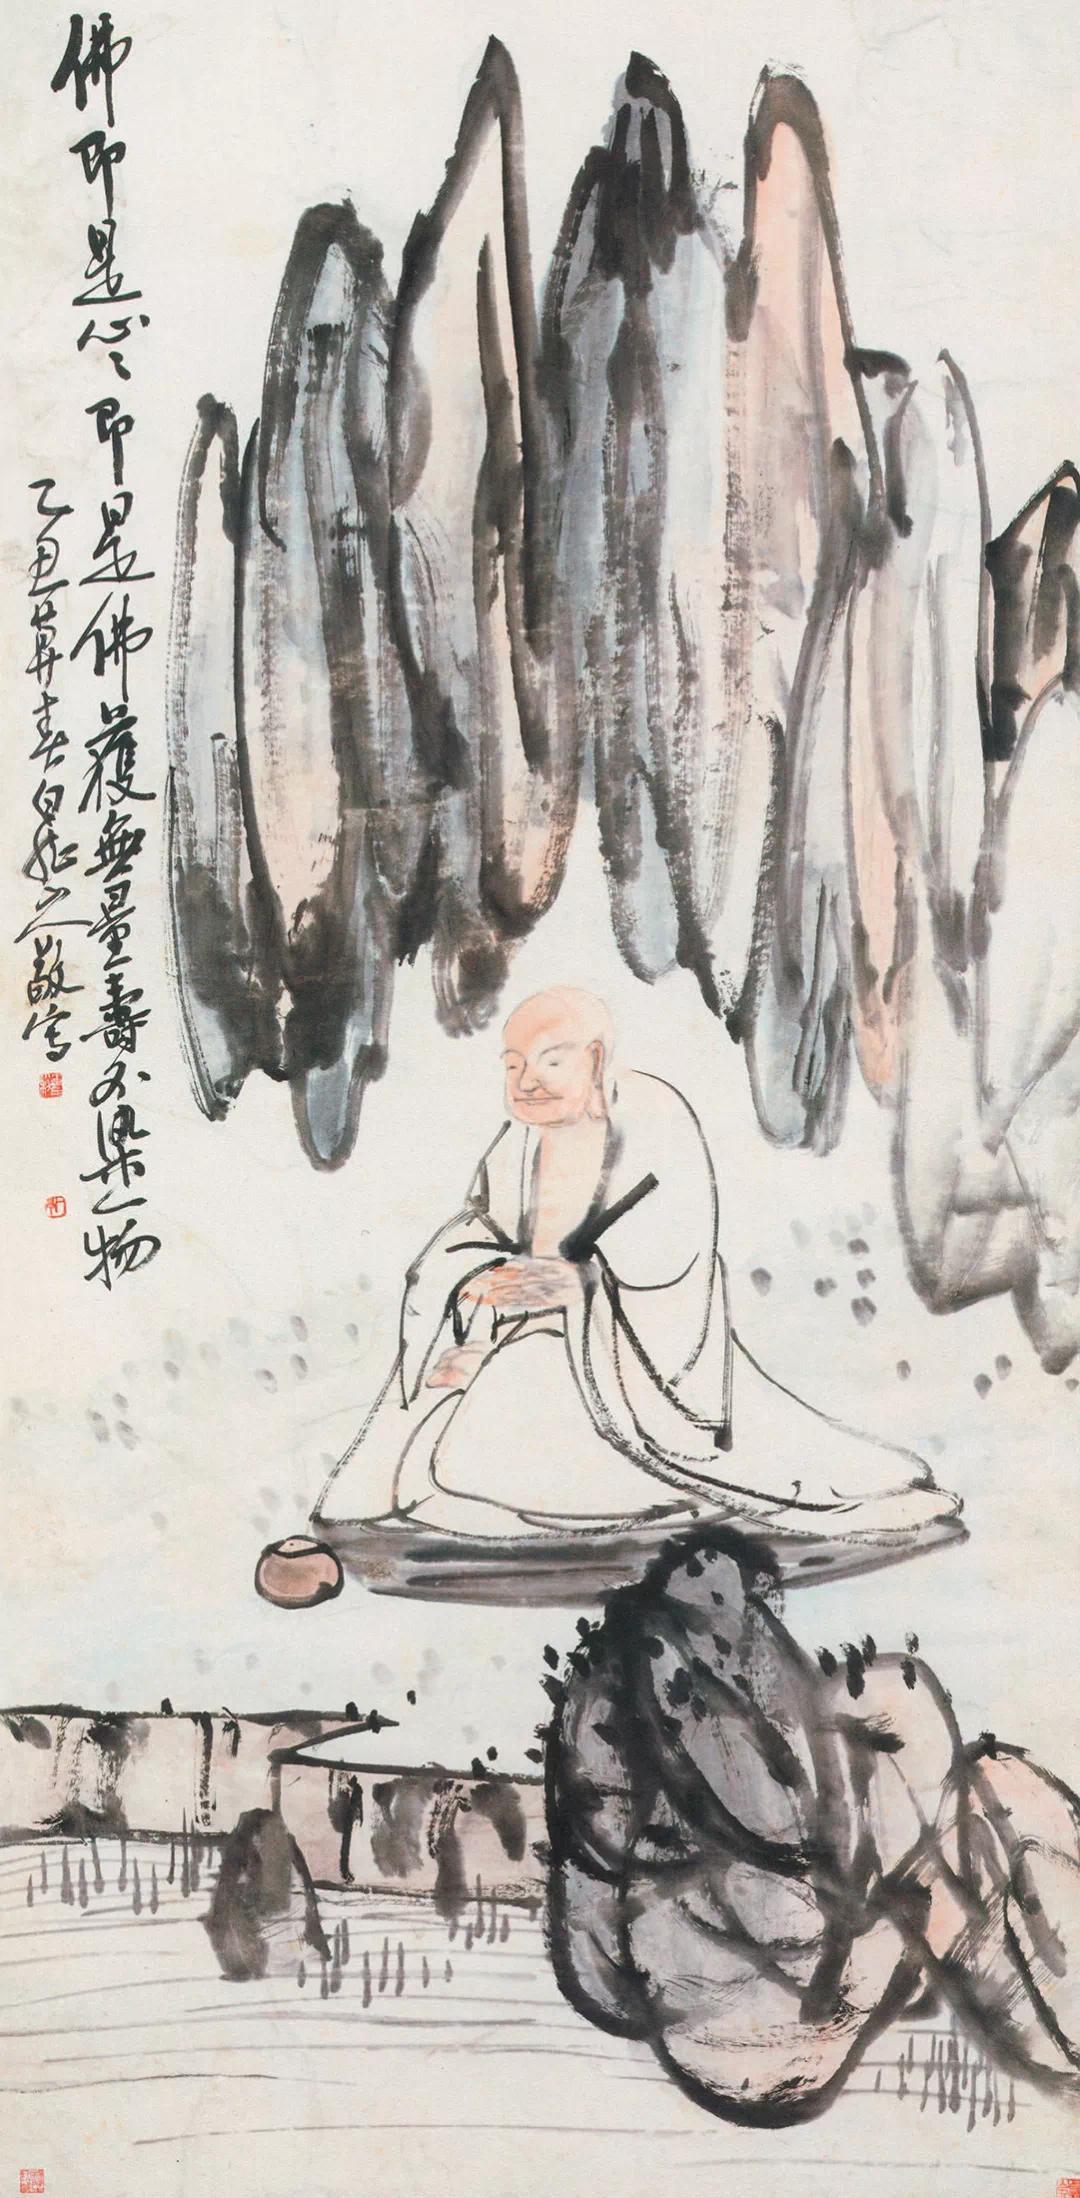 佛即是心〻即是佛獲無量壽不染一物
乙丑莫春白龍山人敬寫